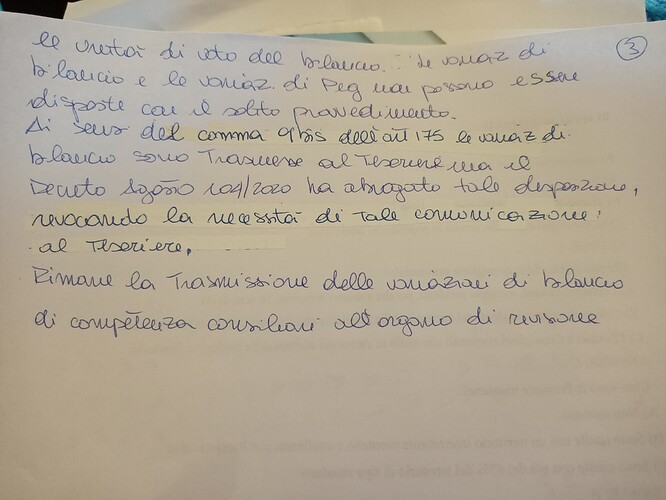 le unità di voto del bilancio. Le variaz di
bilancio e le variaz. di Peg non possono essere
disposte con il solito provvedimento.
Ai sensi del comma 9bis dell'art 175 le variaz di
bilancio sono Trasmesse al Tesoriere ma il
Decreto Agosto 104/2020 ha abrogato tale disposizione,
revocando la necessità di Tale comunicazione
al Tesoriere.
Rimane la Trasmissione delle variazioni di bilancio
di competenza consiliari all'organo di revisione
3